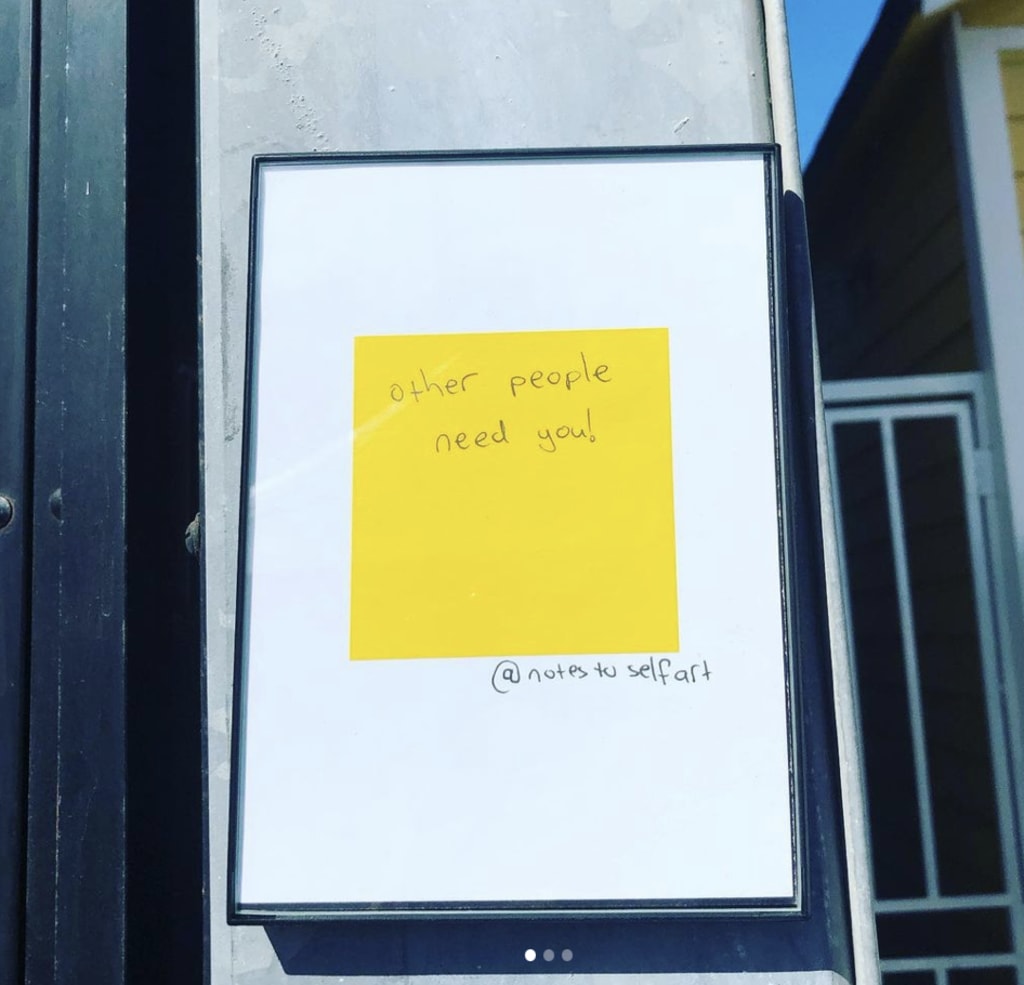 other people
need you!
@notes to selfart